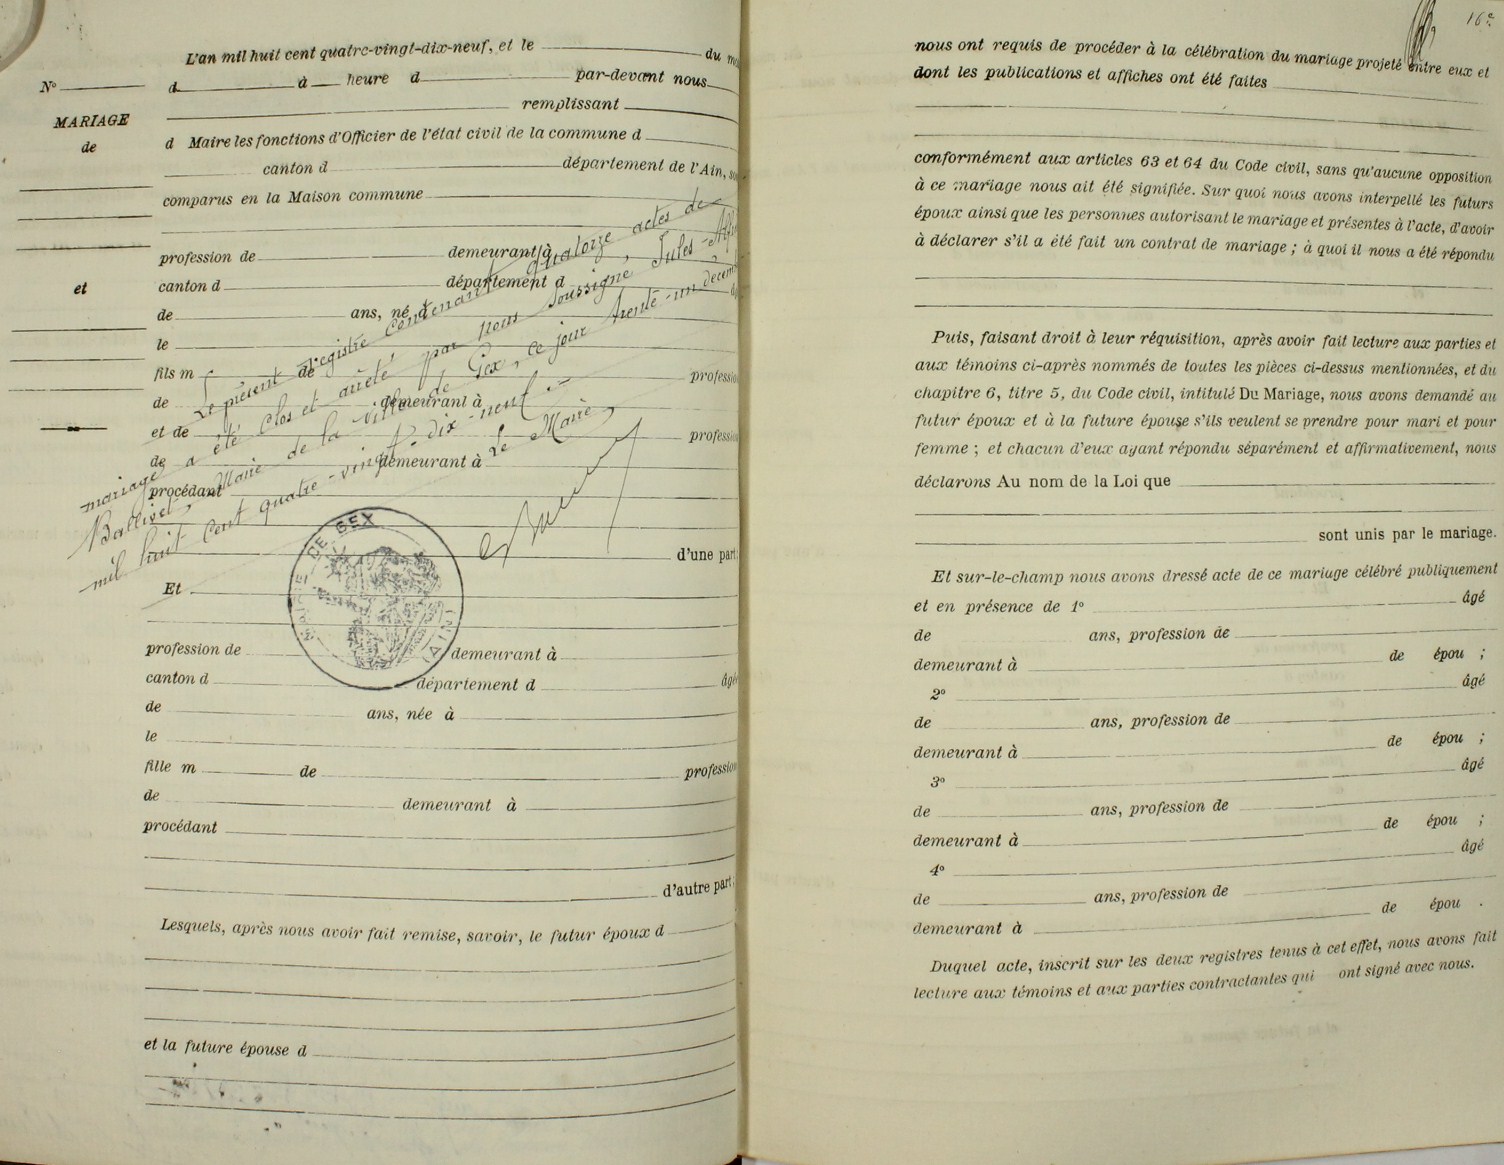 L'an mil huit cent quatre-vingt-dix-neuf, et le du
d à heure d par-devant nous
remplissant
d Maire les fonctions d'Officier de l'état civil de la commune d
canton d département de l'Ain,
comparus en la Maison commune
profession de demeurant à
canton d département d
de ans, né d
le
fils m de profession
de demeurant à
et de profession
de demeurant à
procédant
d'une part;
Et
profession de demeurant à
canton d département d âgé
de ans, née à
le
fille m de profession
de demeurant à
procédant
d'autre part;
Lesquels, après nous avoir fait remise, savoir, le futur époux d
et la future épouse d
N°
MARIAGE
de
et
Le présent registre contenant quatorze actes de
mariage a été clos et arrêté par nous soussigné, Jules-
Ballivet, Maire de la ville de Gex, ce jour trente-un
mil huit cent quatre-vingt-dix-neuf.
Le Maire,
MAIRIE DE GEX
(AIN)
16e
nous ont requis de procéder à la célébration du mariage projeté entre eux et
dont les publications et affiches ont été faites
conformément aux articles 63 et 64 du Code civil, sans qu'aucune opposition
à ce mariage nous ait été signifiée. Sur quoi nous avons interpellé les futurs
époux ainsi que les personnes autorisant le mariage et présentes à l'acte, d'avoir
à déclarer s'il a été fait un contrat de mariage ; à quoi il nous a été répondu
Puis, faisant droit à leur réquisition, après avoir fait lecture aux parties et
aux témoins ci-après nommés de toutes les pièces ci-dessus mentionnées, et du
chapitre 6, titre 5, du Code civil, intitulé Du Mariage, nous avons demandé au
futur époux et à la future épouse s'ils veulent se prendre pour mari et pour
femme ; et chacun d'eux ayant répondu séparément et affirmativement, nous
déclarons Au nom de la Loi que
sont unis par le mariage.
Et sur-le-champ nous avons dressé acte de ce mariage célébré publiquement
et en présence de 1° âgé
de ans, profession de
demeurant à de épou ;
2° âgé
de ans, profession de
demeurant à de épou ;
3° âgé
de ans, profession de
demeurant à de épou ;
4° âgé
de ans, profession de
demeurant à de épou .
Duquel acte, inscrit sur les deux registres tenus à cet effet, nous avons fait
lecture aux témoins et aux parties contractantes qui ont signé avec nous.